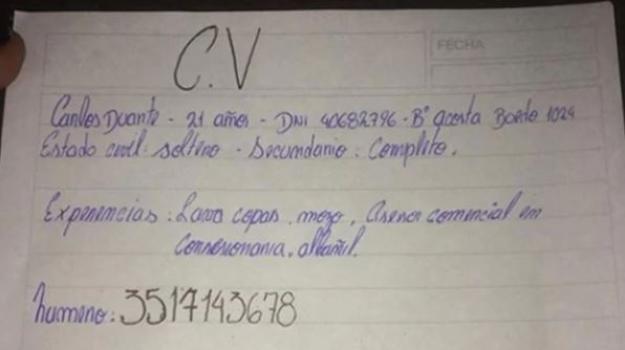 C.V
FECHA
Carlos Duarte - 21 años - DNI 40682796 - B° acosta Boedo 1024
Estado civil: soltero - Secundario: Completo.
Experiencias: Lava copas, mozo, Asesor comercial en
Concesionaria, albañil.
humero: 3517143678